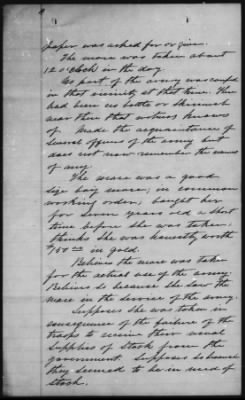 paper was asked for or given.
The mare was taken about
12 o'clock in the day.
No part of the army was camped
in that vicinity at that time. There
had been no battle or skirmish
near there that witness knows
of. Made the acquaintance of
several officers of the army but
does not now remember the names
of any.
The mare was a good
size bay mare; in common
working order; bought her
for seven years old a short
time before she was taken;
thinks she was honestly worth
$150.00 in gold.
Believes the mare was taken
for the actual use of the army.
Believes so because she saw the
mare in the service of the army.
Supposes she was taken in
consequence of the failure of the
troops to receive their usual
supplies of stock from the
government. Supposes so because
they seemed to be in need of
stock.